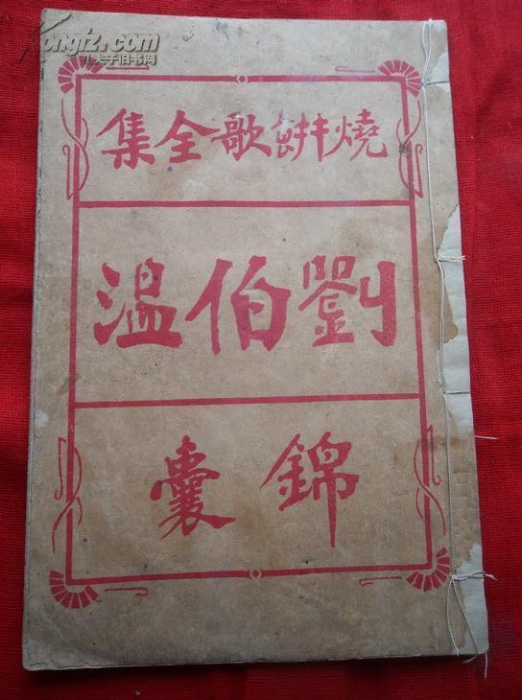 kongfz.com
孔夫子旧书网
燒餠歌全集
劉伯温
錦囊